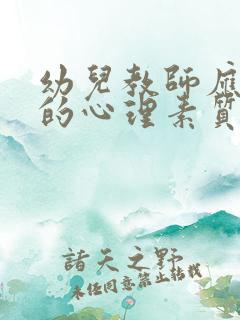 幼兒教師應
的心理素質
諸天之野
未任同意禁止转载